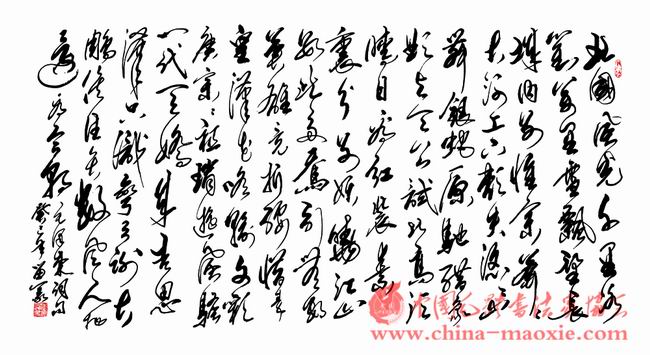 北國風光千里冰
封萬里雪飄望長
城內外惟餘莽莽
大河上下頓失滔滔山
舞銀蛇原馳蠟象
欲與天公試比高須
晴日看紅裝素
裹分外妖嬈江山
如此多嬌引無數
英雄競折腰惜秦
皇漢武略輸文采
唐宗宋祖稍遜風騷
一代天驕成吉思
汗只識彎弓射大
雕俱往矣數風流人物
還看今朝
毛澤東詞
www.china-maoxie.com